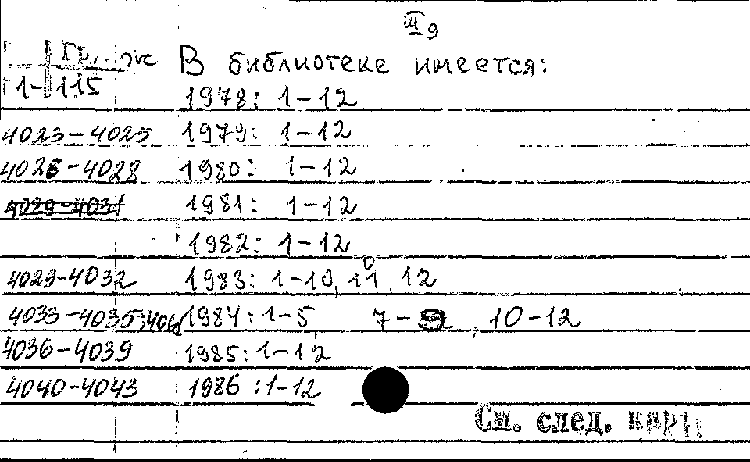 III 9
В библиотеке имеется:
1-115 1978: 1-12
4023-4025 1979: 1-12
4026-4028 1980: 1-12
4029-4031 1981: 1-12
1982: 1-12
4029-4032 1983: 1-10, 11, 12
4033-4035; 1984: 1-5 7-9, 10-12
4036-4039 1985: 1-12
4040-4043 1986: 1-12
См. след. карт.